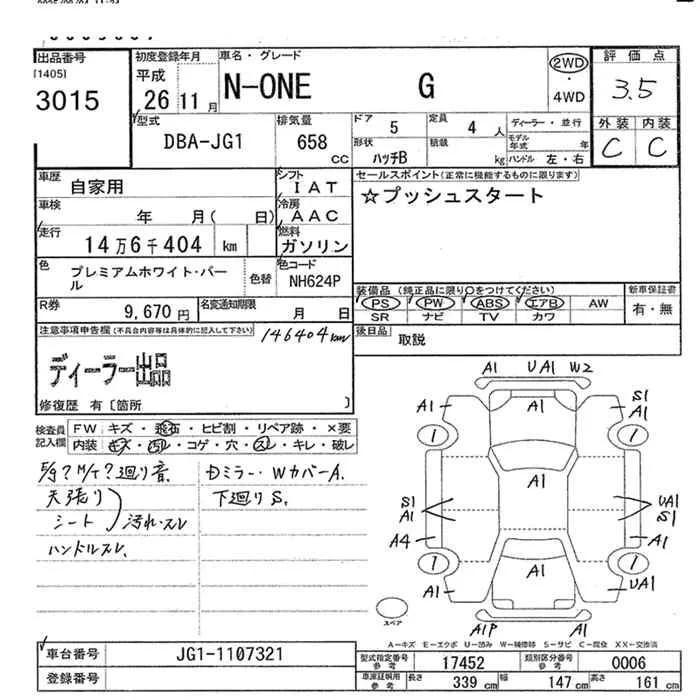 出品番号
[1405]
3015
初度登録年月
平成
26 11 月
車名・グレード
N-ONE G
2WD
・
4WD
評価点
3.5
外装 内装
C C
型式
DBA-JG1
排気量
658
CC
ドア
5
定員
4 人
形状
ハッチB
積載
kg
ディーラー・並行
モデル年式 年
ハンドル 左・右
車歴
自家用
シフト
IAT
車検
年 月( 日)
冷房
AAC
走行
14万6千404 km
燃料
ガソリン
色
プレミアムホワイト・パール
色替
色コード
NH624P
R券
9,670 円
名変通知期限
月 日
セールスポイント(正常に機能するものに限ります)
☆プッシュスタート
装備品(純正品に限り○をつけてください)
PS PW ABS エアB AW
SR ナビ TV カワ
新車保証書
有・無
後日品
取説
注意事項申告欄(不具合内容等は具体的に記入して下さい)
146404km
ディーラー出品
修復歴 有〔箇所 〕
検査員
記入欄
FW キズ・飛石・ヒビ割・リペア跡・×要
内装 キズ・汚レ・コゲ・穴・スレ・キレ・破レ
E/g?M/T?廻り音.
天張り
シート 汚れ・スレ
ハンドルスレ、
Dミラー・WカバーA.
下廻りS.
A1 UA1 W2
A1 A1 S1
A1
1 1
A1
S1
A1
UA1
S1
A4 A1
1 1
A1 A1 UA1
A1P A1
スペア
A=キズ E=エクボ U=凹み W=補修跡 S=サビ C=腐食 XX=交換済
車台番号
JG1-1107321
登録番号
型式指定番号
参考
17452
類別区分番号
参考
0006
車庫証明用
参考
長さ
339 cm
幅
147 cm
高さ
161 cm